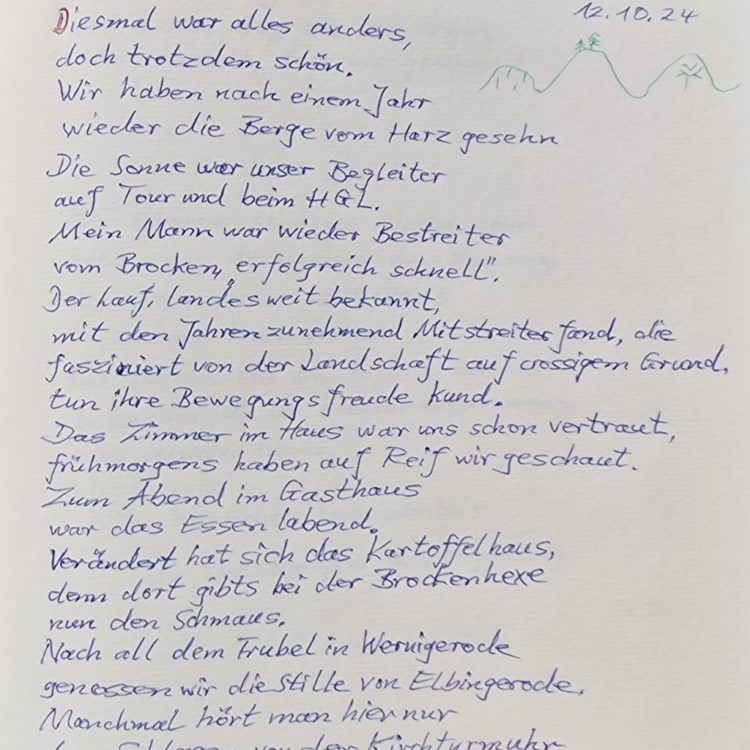 12.10.24
Diesmal war alles anders,
doch trotzdem schön.
Wir haben nach einem Jahr
wieder die Berge vom Harz gesehn
Die Sonne war unser Begleiter
auf Tour und beim HGL.
Mein Mann war wieder Bestreiter
vom Brocken „erfolgreich schnell".
Der Lauf, landesweit bekannt,
mit den Jahren zunehmend Mitstreiter fand, die
fasziniert von der Landschaft auf crossigem Grund,
tun ihre Bewegungsfreude kund.
Das Zimmer im Haus war uns schon vertraut,
frühmorgens haben auf Reif wir geschaut.
Zum Abend im Gasthaus
war das Essen labend.
Verändert hat sich das Kartoffelhaus,
denn dort gibts bei der Brockenhexe
nun den Schmaus.
Nach all dem Trubel in Wernigerode
genossen wir die Stille von Elbingerode.
Manchmal hört man hier nur
von der Kirchturmuhr